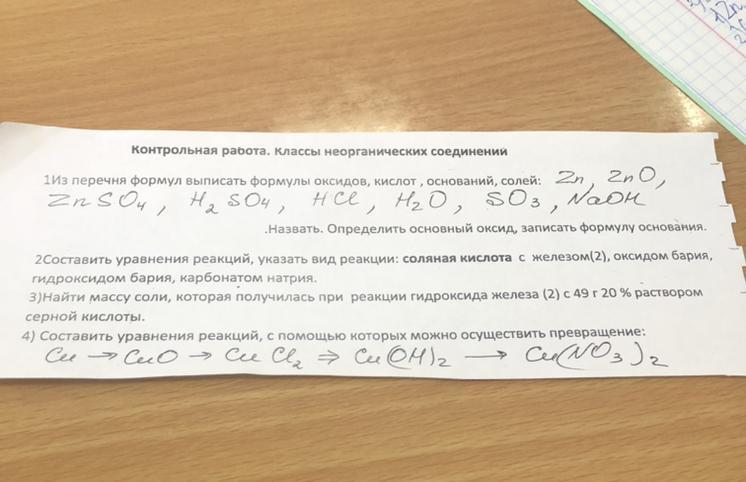 Контрольная работа. Классы неорганических соединений
1Из перечня формул выписать формулы оксидов, кислот , оснований, солей: Zn, ZnO,
ZnSO4, H2SO4, HCl, H2O, SO3, NaOH
.Назвать. Определить основный оксид, записать формулу основания.
2Составить уравнения реакций, указать вид реакции: соляная кислота с железом(2), оксидом бария,
гидроксидом бария, карбонатом натрия.
3)Найти массу соли, которая получилась при реакции гидроксида железа (2) с 49 г 20 % раствором
серной кислоты.
4) Составить уравнения реакций, с помощью которых можно осуществить превращение:
Cu → CuO → CuCl2 ⇒ Cu(OH)2 → Cu(NO3)2